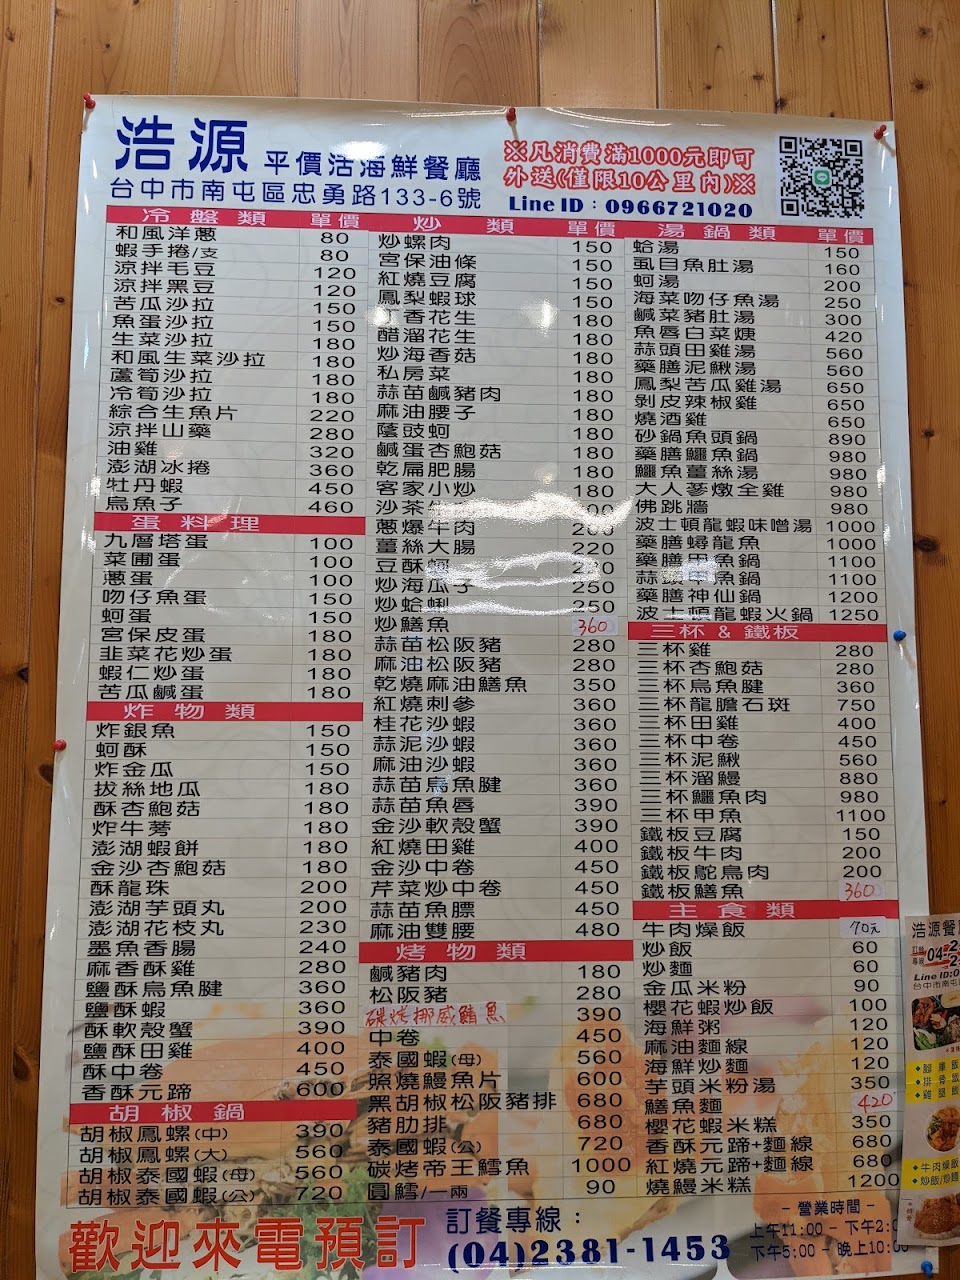 浩源 平價活海鮮餐廳
台中市南屯區忠勇路133-6號
※凡消費滿1000元即可
外送(僅限10公里內)※
Line ID：0966721020
冷盤類 單價
和風洋蔥 80
蝦手捲/支 80
涼拌毛豆 120
涼拌黑豆 120
苦瓜沙拉 150
魚蛋沙拉 150
生菜沙拉 180
和風生菜沙拉 180
蘆筍沙拉 180
冷筍沙拉 180
綜合生魚片 220
涼拌山藥 280
油雞 320
澎湖冰捲 360
牡丹蝦 450
烏魚子 460
蛋料理
九層塔蛋 100
菜圃蛋 100
蔥蛋 100
吻仔魚蛋 150
蚵蛋 150
宮保皮蛋 180
韭菜花炒蛋 180
蝦仁炒蛋 180
苦瓜鹹蛋 180
炸物類
炸銀魚 150
蚵酥 150
炸金瓜 150
拔絲地瓜 180
酥杏鮑菇 180
炸牛蒡 180
澎湖蝦餅 180
金沙杏鮑菇 180
酥龍珠 200
澎湖芋頭丸 200
澎湖花枝丸 230
墨魚香腸 240
麻香酥雞 280
鹽酥烏魚腱 360
鹽酥蝦 360
酥軟殼蟹 390
鹽酥田雞 400
酥中卷 450
香酥元蹄 600
胡椒鍋
胡椒鳳螺(中) 390
胡椒鳳螺(大) 560
胡椒泰國蝦(母) 560
胡椒泰國蝦(公) 720
炒類 單價
炒螺肉 150
宮保油條 150
紅燒豆腐 150
鳳梨蝦球 150
丁香花生 180
醋溜花生 180
炒海香菇 180
私房菜 180
蒜苗鹹豬肉 180
麻油腰子 180
蔭豉蚵 180
鹹蛋杏鮑菇 180
乾扁肥腸 180
客家小炒 180
沙茶
蔥爆牛肉 200
薑絲大腸 220
豆酥蚵 220
炒海瓜子 250
炒蛤蜊 250
炒鱔魚 360
蒜苗松阪豬 280
麻油松阪豬 280
乾燒麻油鱔魚 350
紅燒刺參 360
桂花沙蝦 360
蒜泥沙蝦 360
麻油沙蝦 360
蒜苗烏魚腱 360
蒜苗魚唇 390
金沙軟殼蟹 390
紅燒田雞 400
金沙中卷 450
芹菜炒中卷 450
蒜苗魚膘 450
麻油雙腰 480
烤物類
鹹豬肉 180
松阪豬 280
碳烤挪威鯖魚 390
中卷 450
泰國蝦(母) 560
照燒鰻魚片 600
黑胡椒松阪豬排 680
豬肋排 680
泰國蝦(公) 720
碳烤帝王鱈魚 1000
圓鱈/一兩 90
湯鍋類 單價
蛤湯 150
虱目魚肚湯 160
蚵湯 200
海菜吻仔魚湯 250
鹹菜豬肚湯 300
魚唇白菜焿 420
蒜頭田雞湯 560
藥膳泥鰍湯 560
鳳梨苦瓜雞湯 650
剝皮辣椒雞 650
燒酒雞 650
砂鍋魚頭鍋 890
藥膳鱷魚鍋 980
鱷魚薑絲湯 980
大人蔘燉全雞 980
佛跳牆 980
波士頓龍蝦味噌湯 1000
藥膳鱘龍魚 1000
藥膳甲魚鍋 1100
蒜頭甲魚鍋 1100
藥膳神仙鍋 1200
波士頓龍蝦火鍋 1250
三杯 & 鐵板
三杯雞 280
三杯杏鮑菇 280
三杯烏魚腱 360
三杯龍膽石斑 750
三杯田雞 400
三杯中卷 450
三杯泥鰍 560
三杯溜鰻 880
三杯鱷魚肉 980
三杯甲魚 1100
鐵板豆腐 150
鐵板牛肉 200
鐵板鴕鳥肉 200
鐵板鱔魚 360
主食類
牛肉燥飯 70元
炒飯 60
炒麵 60
金瓜米粉 90
櫻花蝦炒飯 100
海鮮粥 120
麻油麵線 120
海鮮炒麵 120
芋頭米粉湯 350
鱔魚麵 420
櫻花蝦米糕 350
香酥元蹄+麵線 680
紅燒元蹄+麵線 680
燒鰻米糕 1200
歡迎來電預訂
訂餐專線：
(04)2381-1453
- 營業時間 -
上午11:00 - 下午2:0
下午5:00 - 晚上10:00
浩源餐
04-2
Line ID:0
台中市南屯